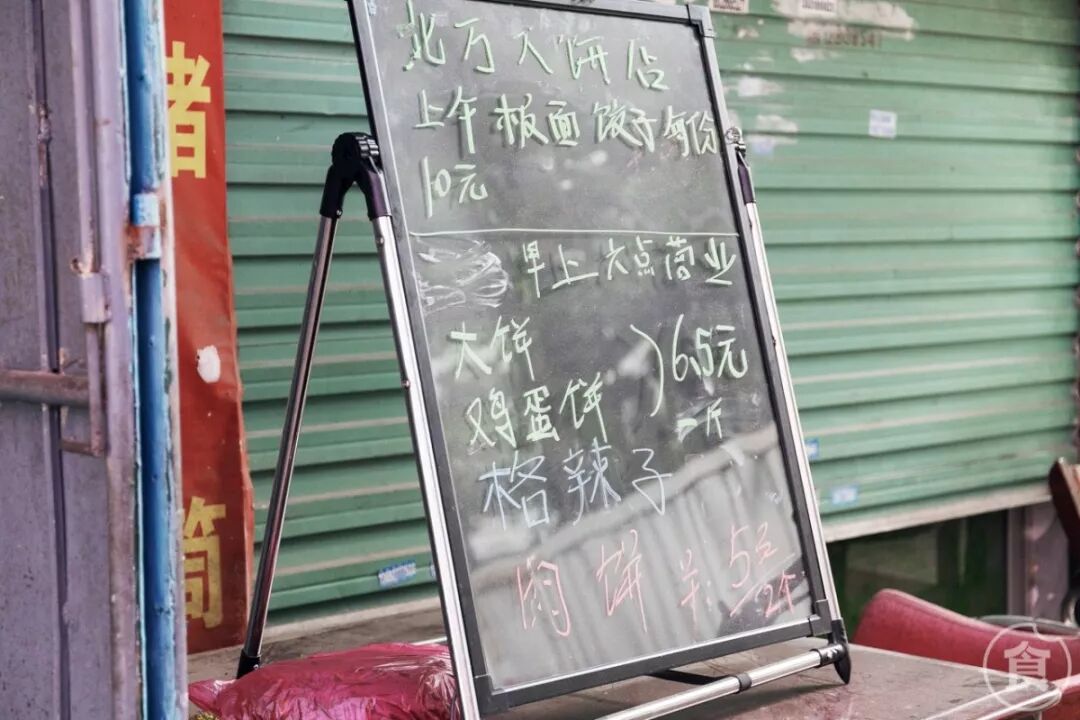 北方大饼店
上午板面饺子每份
10元
早上六点营业
大饼
鸡蛋饼
6.5元
一斤
格辣子
肉饼
5元/2个
猪
筒
食